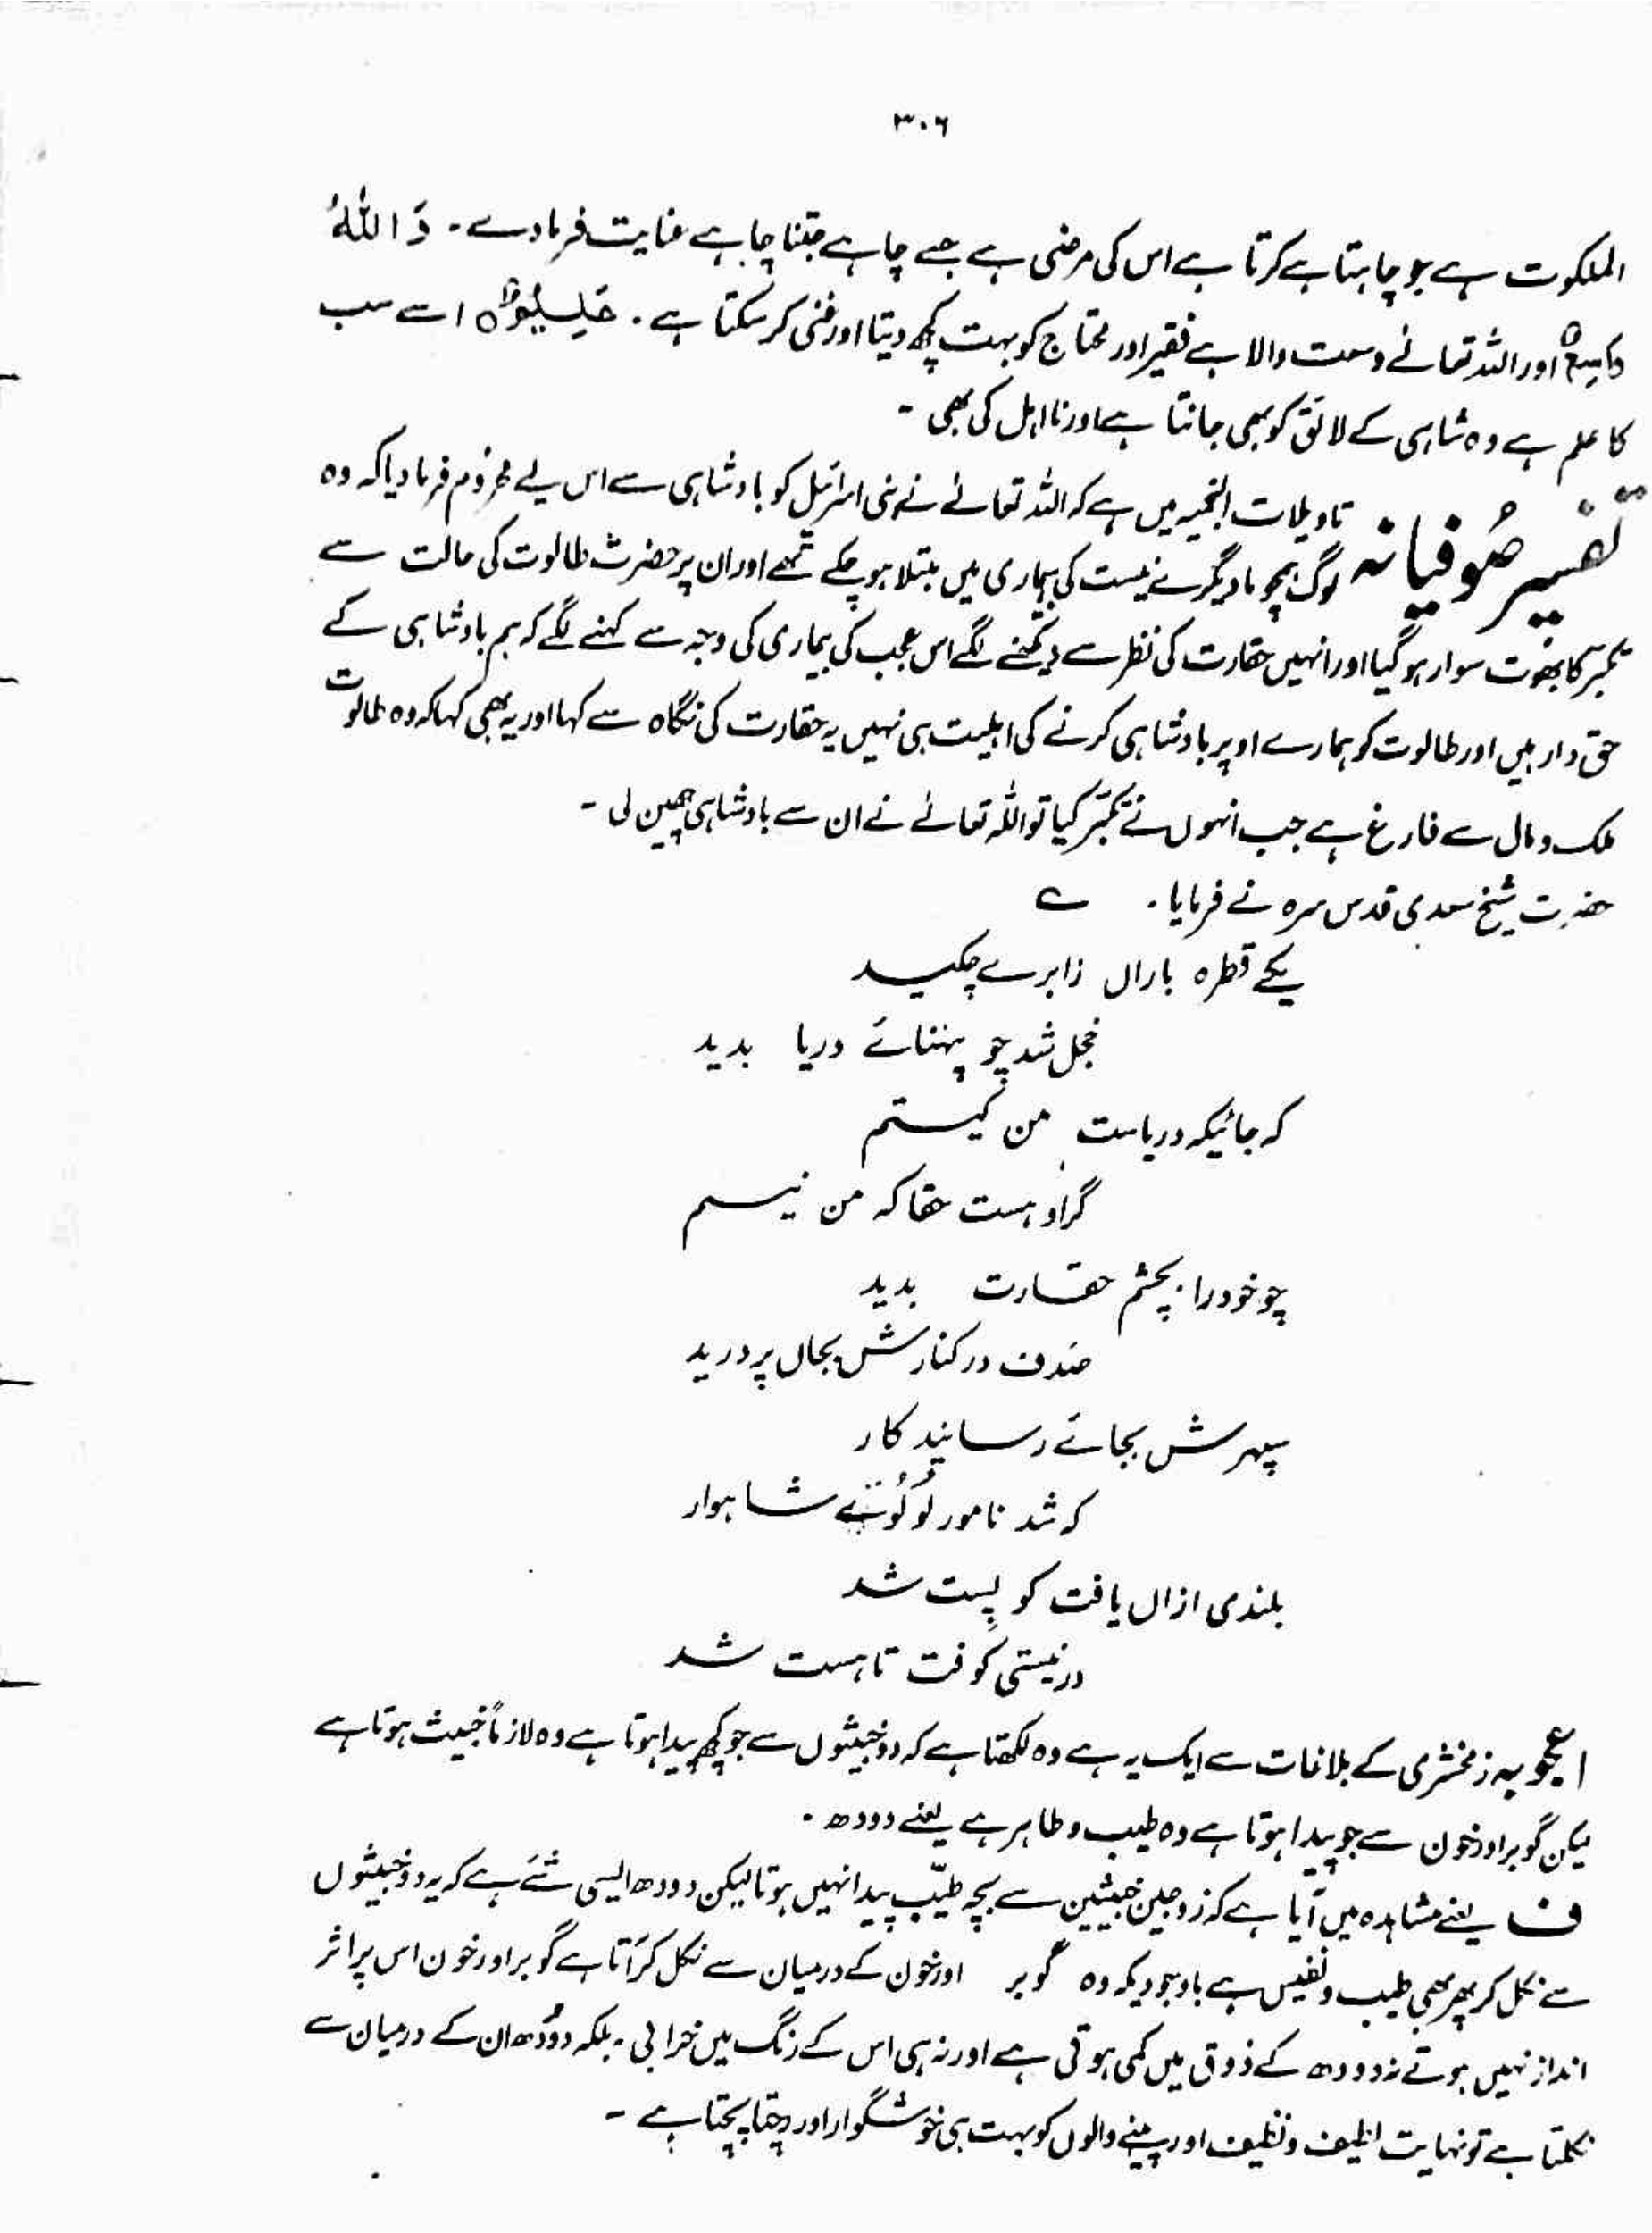 ۳۰۶
الملکوت ہے جو چاہتا ہے کرتا ہے اس کی مرضی ہے جسے چاہے جتنا چاہے عنایت فرمادے۔ وَاللّٰہُ
وَاسِعٌ اور اللہ تعالےٰ وسعت والا ہے فقیر اور محتاج کو بہت کچھ دیتا اور غنی کر سکتا ہے۔ عَلِیْمٌ ۵ اسے سب
کا علم ہے وہ شاہی کے لائق کو بھی جانتا ہے اور نا اہل کی بھی۔
تفسیر صُوفیانہ تاویلات النجمیہ میں ہے کہ اللہ تعالےٰ نے بنی اسرائیل کو بادشاہی سے اس لیے محروم فرما دیا کہ وہ
لوگ ہمچو ما دیگرے نیست کی بیماری میں مبتلا ہو چکے تھے اور ان پر حضرت طالوت کی حالت سے
تکبر کا بھُوت سوار ہو گیا اور انہیں حقارت کی نظر سے دیکھنے لگے اس عجب کی بیماری کی وجہ سے کہنے لگے کہ ہم بادشاہی کے
حق دار ہیں اور طالوت کو ہمارے اوپر بادشاہی کرنے کی اہلیت ہی نہیں یہ حقارت کی نگاہ سے کہا اور یہ بھی کہا کہ وہ طالوت
ملک و مال سے فارغ ہے جب انہوں نے تکبّر کیا تو اللہ تعالےٰ نے ان سے بادشاہی چھین لی۔
حضرت شیخ سعدی قدس سرہ نے فرمایا۔ ے
یکے قطرہ باراں زابرے چکید
خجل شد چو پہنائے دریا بدید
کہ جائیکہ دریاست من کیستم
گر او ہست حقا کہ من نیستم
چو خود را بچشم حقارت بدید
صَدف در کنارش بجاں پرورید
سپہرش بجائے رسانید کار
کہ شد نامور لُوْلُوئے شاہوار
بلندی ازاں یافت کو پست شد
در نیستی کوفت تا ہست شد
اعجوبہ زمخشری کے بلاغات سے ایک یہ ہے وہ لکھتا ہے کہ دو خبیثوں سے جو کچھ پیدا ہوتا ہے وہ لازماً خبیث ہوتا ہے
لیکن گوبر اور خون سے جو پیدا ہوتا ہے وہ طیب و طاہر ہے یعنے دودھ۔
ف یعنے مشاہدہ میں آیا ہے کہ زوجین خبیثین سے بچہ طیّب پیدا نہیں ہوتا لیکن دودھ ایسی شئے ہے کہ یہ دو خبیثوں
سے نکل کر پھر بھی طیب و نفیس ہے باوجودیکہ وہ گوبر اور خون کے درمیان سے نکل کر آتا ہے گوبر اور خون اس پر اثر
انداز نہیں ہوتے نہ دودھ کے ذوق میں کمی ہوتی ہے اور نہ ہی اس کے رنگ میں خرابی۔ بلکہ دوُدھ ان کے درمیان سے
نکلتا ہے تو نہایت لطیف و نظیف اور پینے والوں کو بہت ہی خوشگوار اور رچتا پچتا ہے۔